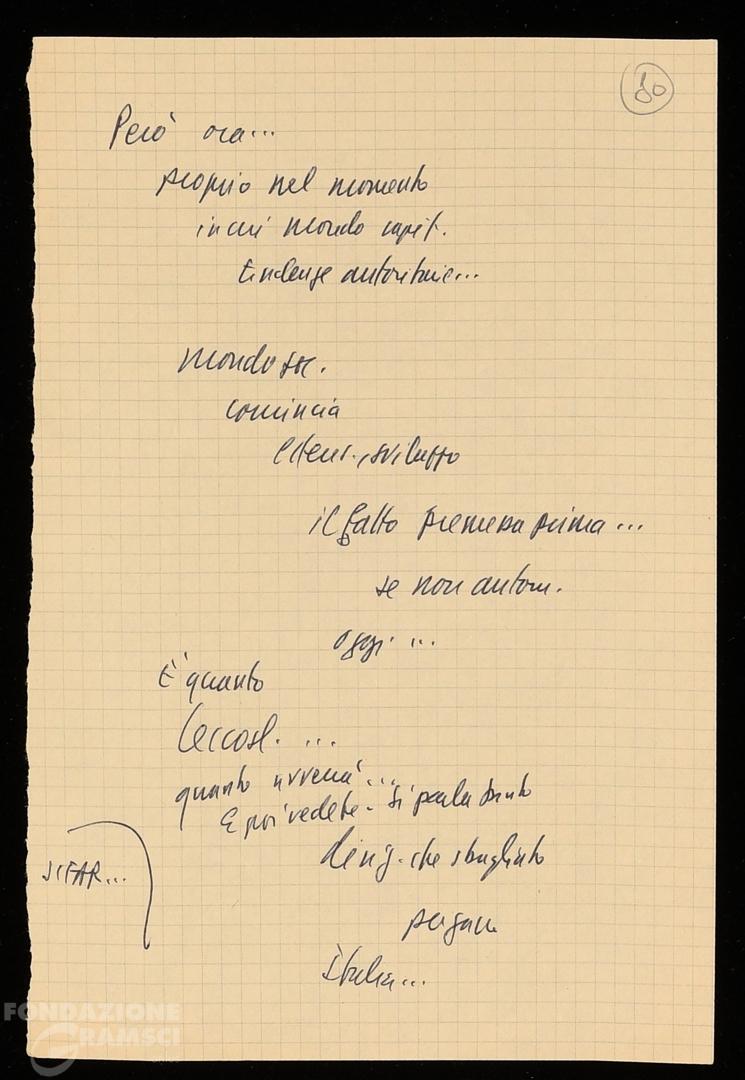 80
Però ora...
proprio nel momento
in cui mondo capit.
tendenze autoritarie...
mondo soc.
comincia
sviluppo
il fatto premessa prima...
se non autom.
oggi ...
È quanto
Cecosl. ...
quanto avverrà...
E poi vedete - si parla tanto
che sbagliato
SIFAR...
Italia...
FONDAZIONE
GRAMSCI